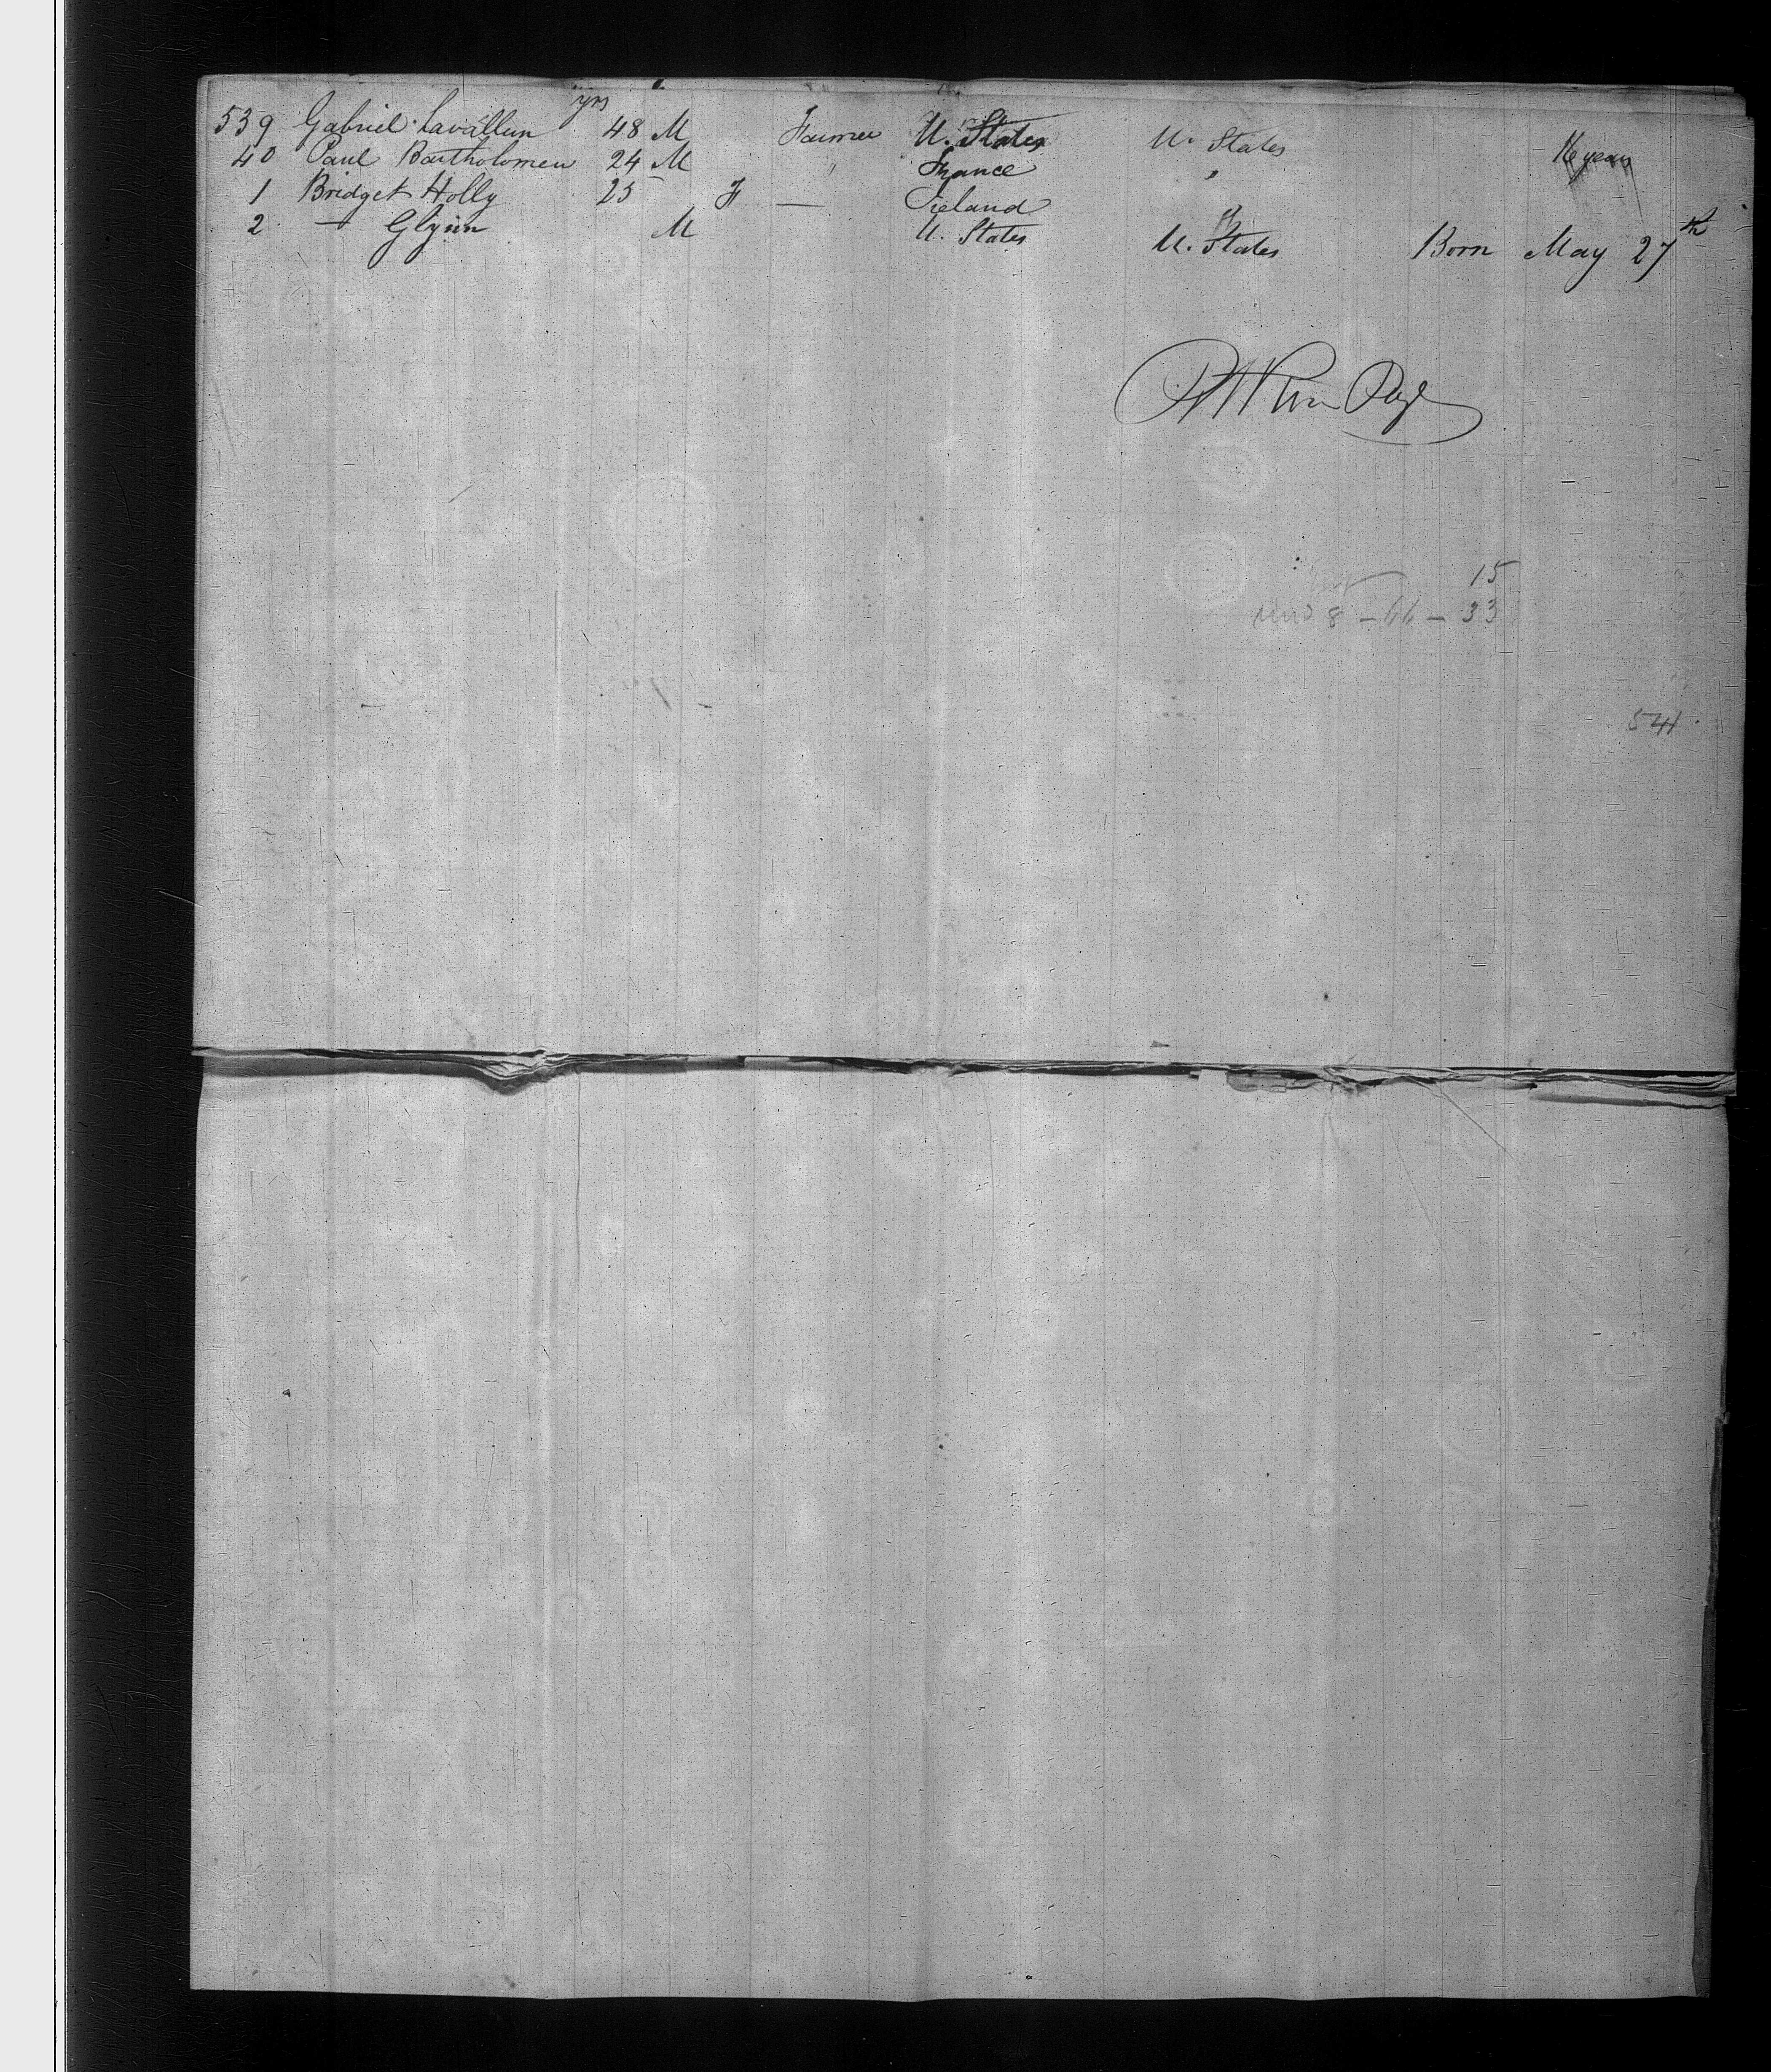 yrs
539 Gabriel Lavallun 48 M Farmer U. States U. States 16 years
40 Paul Bartholomew 24 M " France "
1 Bridget Holly 25 F — Ireland "
2 — Glynn M U. States U. States Born May 27th
15
8 - 66 - 33
541